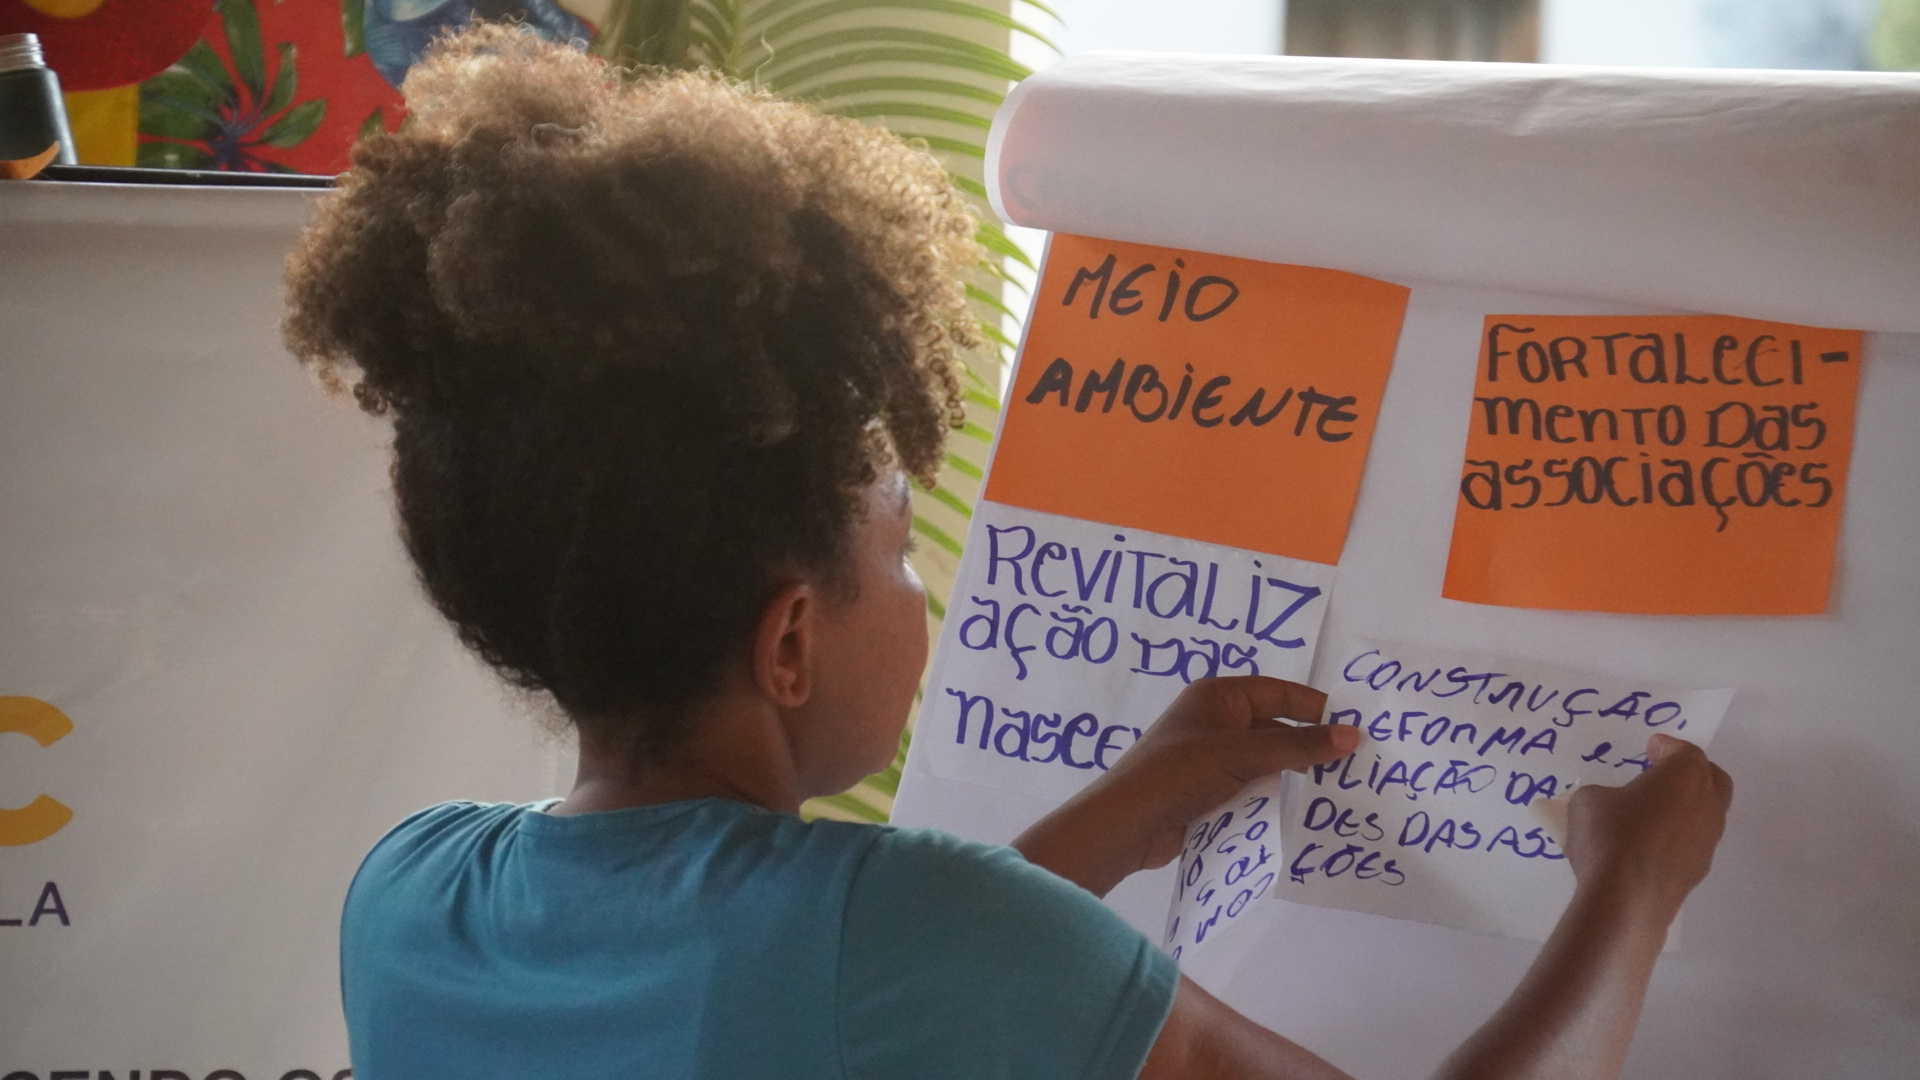 MEIO
AMBIENTE
FORTALECI-
MENTO DAS
ASSOCIAÇÕES
REVITALIZ
AÇÃO DAS
CONSTRUÇÃO,
REFORMA E A
PLIAÇÃO DA
DES DAS ASS
ÇÕES
C
LA